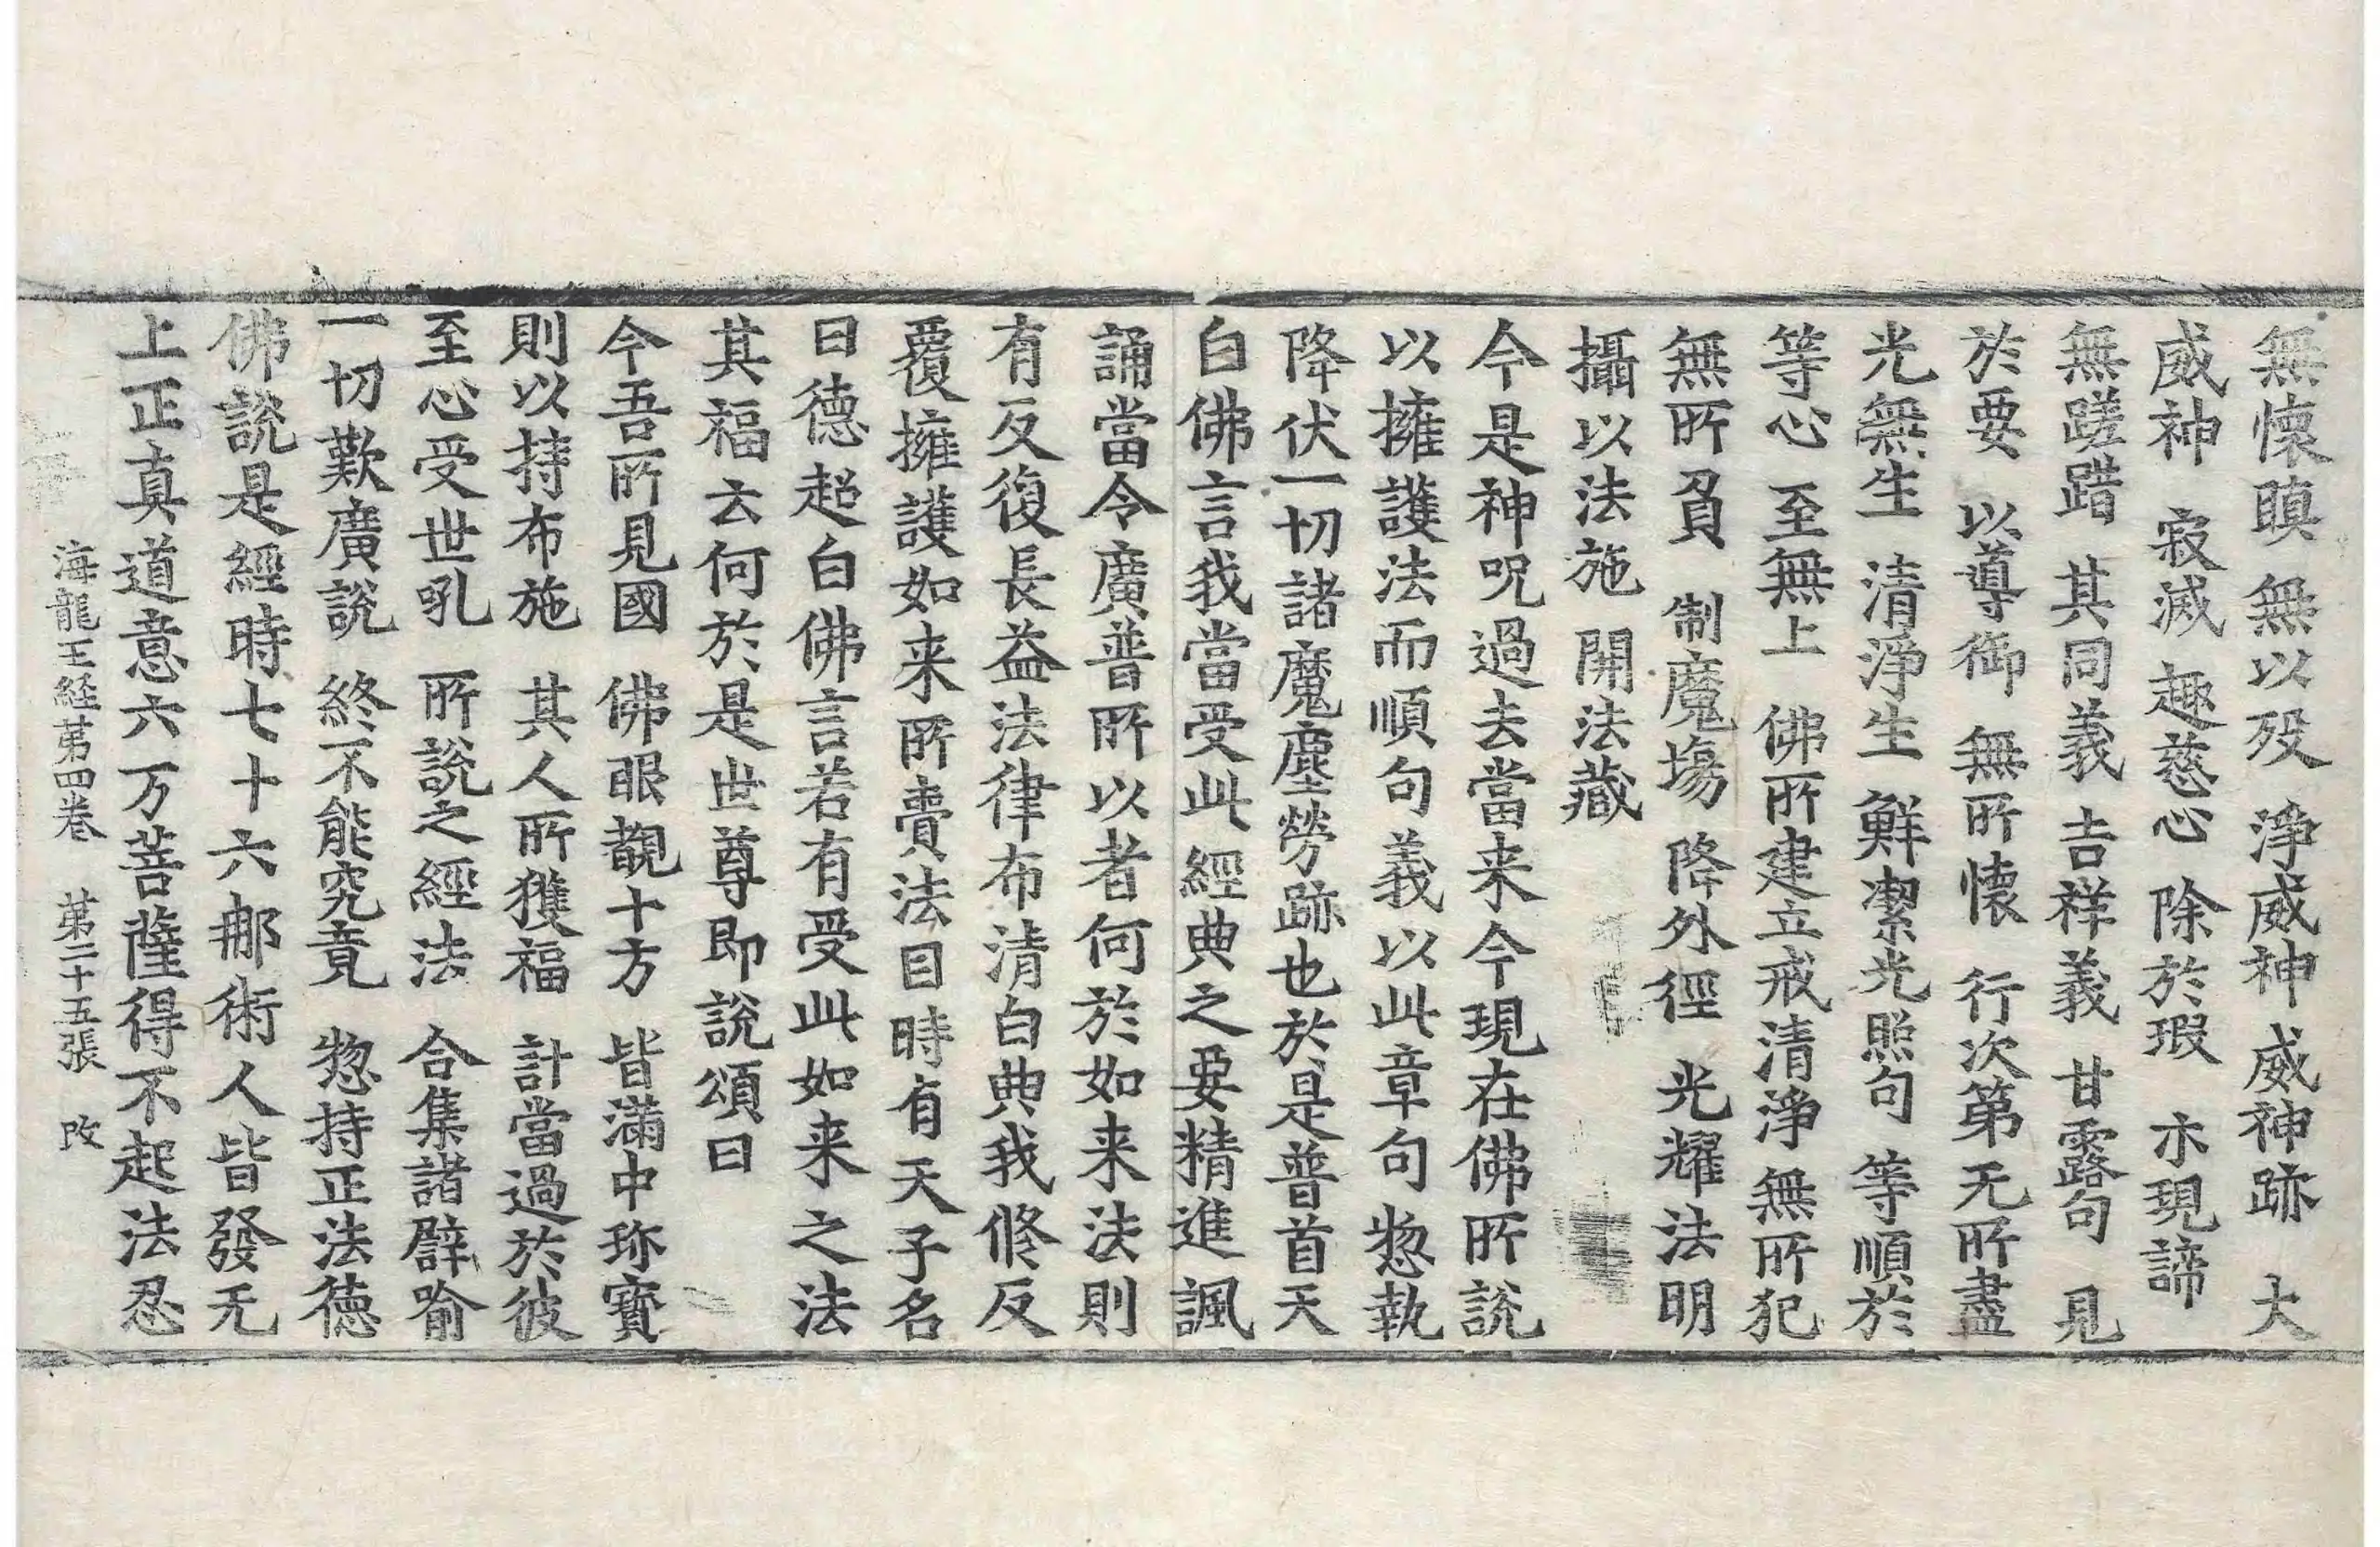 無懷瞋 無以歿 淨威神 威神跡 大
威神 寂滅 趣慈心 除於瑕 示現諦
無蹉踖 其同義 吉祥義 甘露句 見
於要 以導御 無所懷 行次第 无所盡
光無生 清淨生 鮮潔光照句 等順於
等心 至無上 佛所建立戒清淨 無所犯
無所負 制魔塲 降外徑 光耀法明
攝以法施 開法藏
今是神呪過去當来今現在佛所說
以擁護法而順句義以此章句惣執
降伏一切諸魔塵勞跡也於是普首天
白佛言我當受此經典之要精進諷
誦當令廣普所以者何於如来法則
有反復長益法律布清白典我修反
覆擁護如来所賷法目時有天子名
曰德超白佛言若有受此如来之法
其福云何於是世尊即說頌曰
今吾所見國 佛眼覩十方 皆滿中珎寶
則以持布施 其人所獲福 計當過於彼
至心受世吼 所說之經法 合集諸辟喻
一切歎廣說 終不能究竟 惣持正法德
佛說是經時七十六那術人皆發无
上正真道意六万菩薩得不起法忍
海龍王経苐四卷 苐二十五張 改